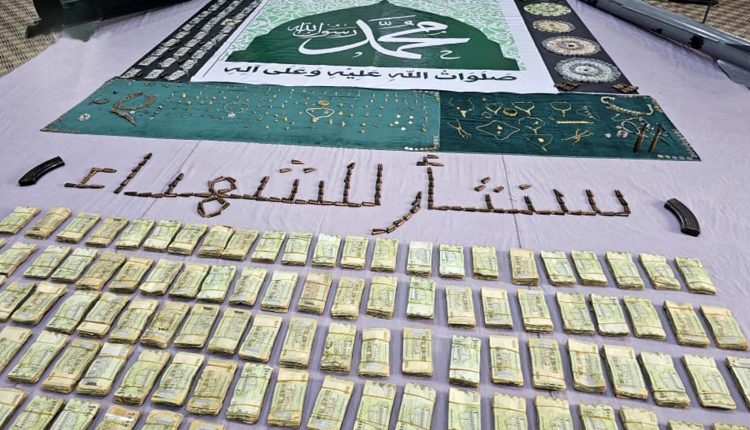 محمد
رسول الله
صلوات الله عليه وعلى آله
سنثأر للشهداء